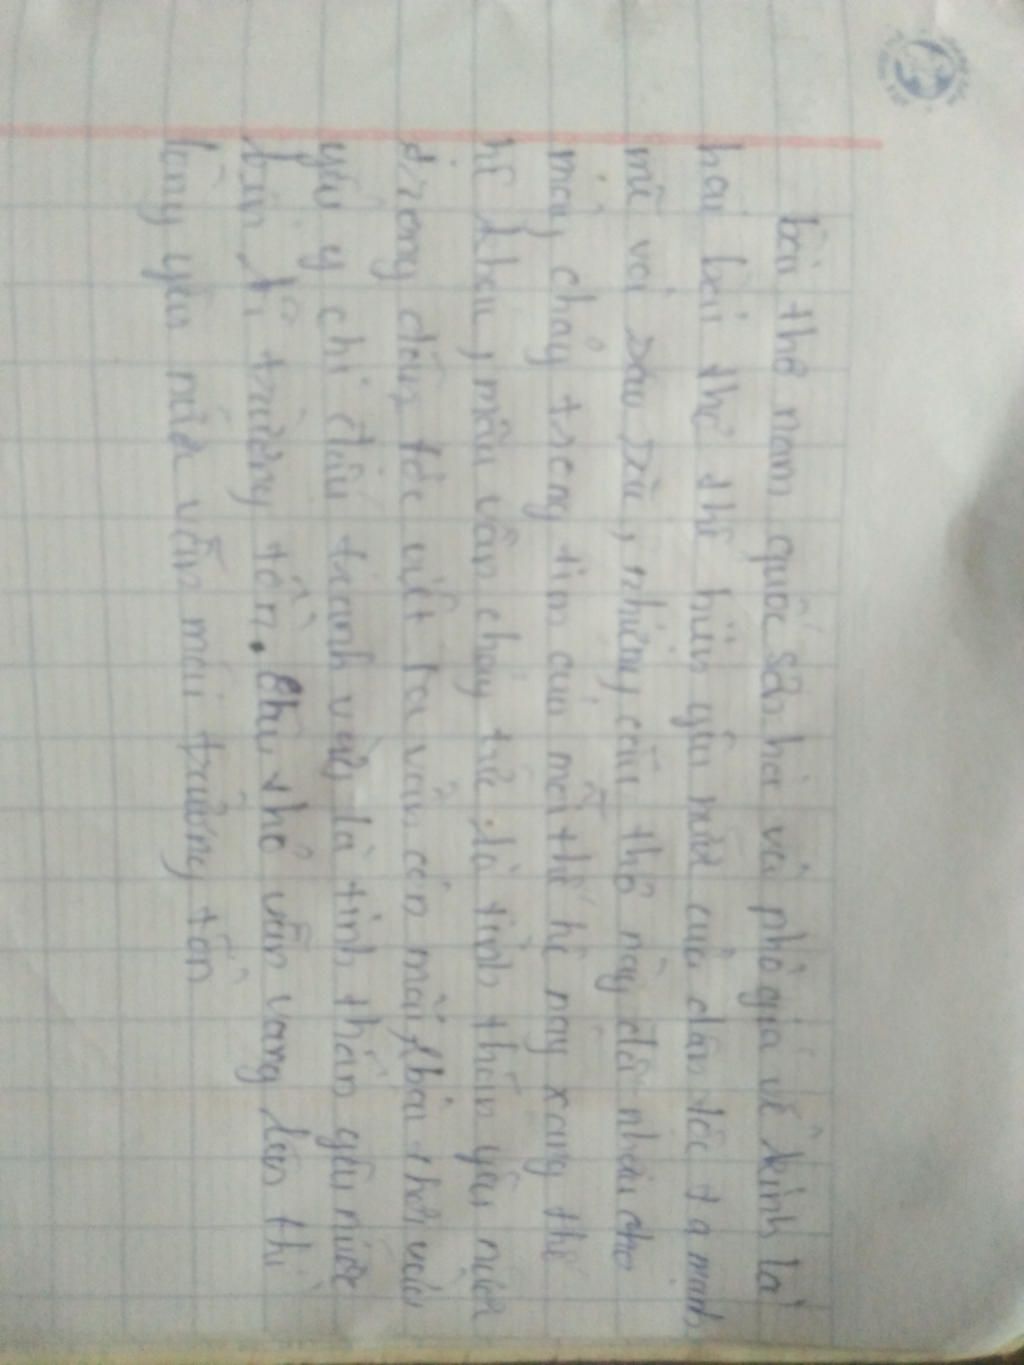 bài thơ nam quốc sơn hà và phò giá về kinh là
hai bài thơ thể hiện yêu nước của dân tộc ta mạnh
mẽ và sâu sắc, những câu thơ này đã nhau cho
máy chảy trong tim của mỗi thế hệ nay xang thế
hệ khau, mãu vẫn chảy tức là tinh thần yêu nước
trong dân tộc việt ta vẫn còn mãi, bài thơ vău
yếu ý chí đấu tranh vừa là tinh thần yêu nước
bản trường tồn. Câu thơ vẫn vang lên thì
lòng yêu nước vẫn mãi trường tồn